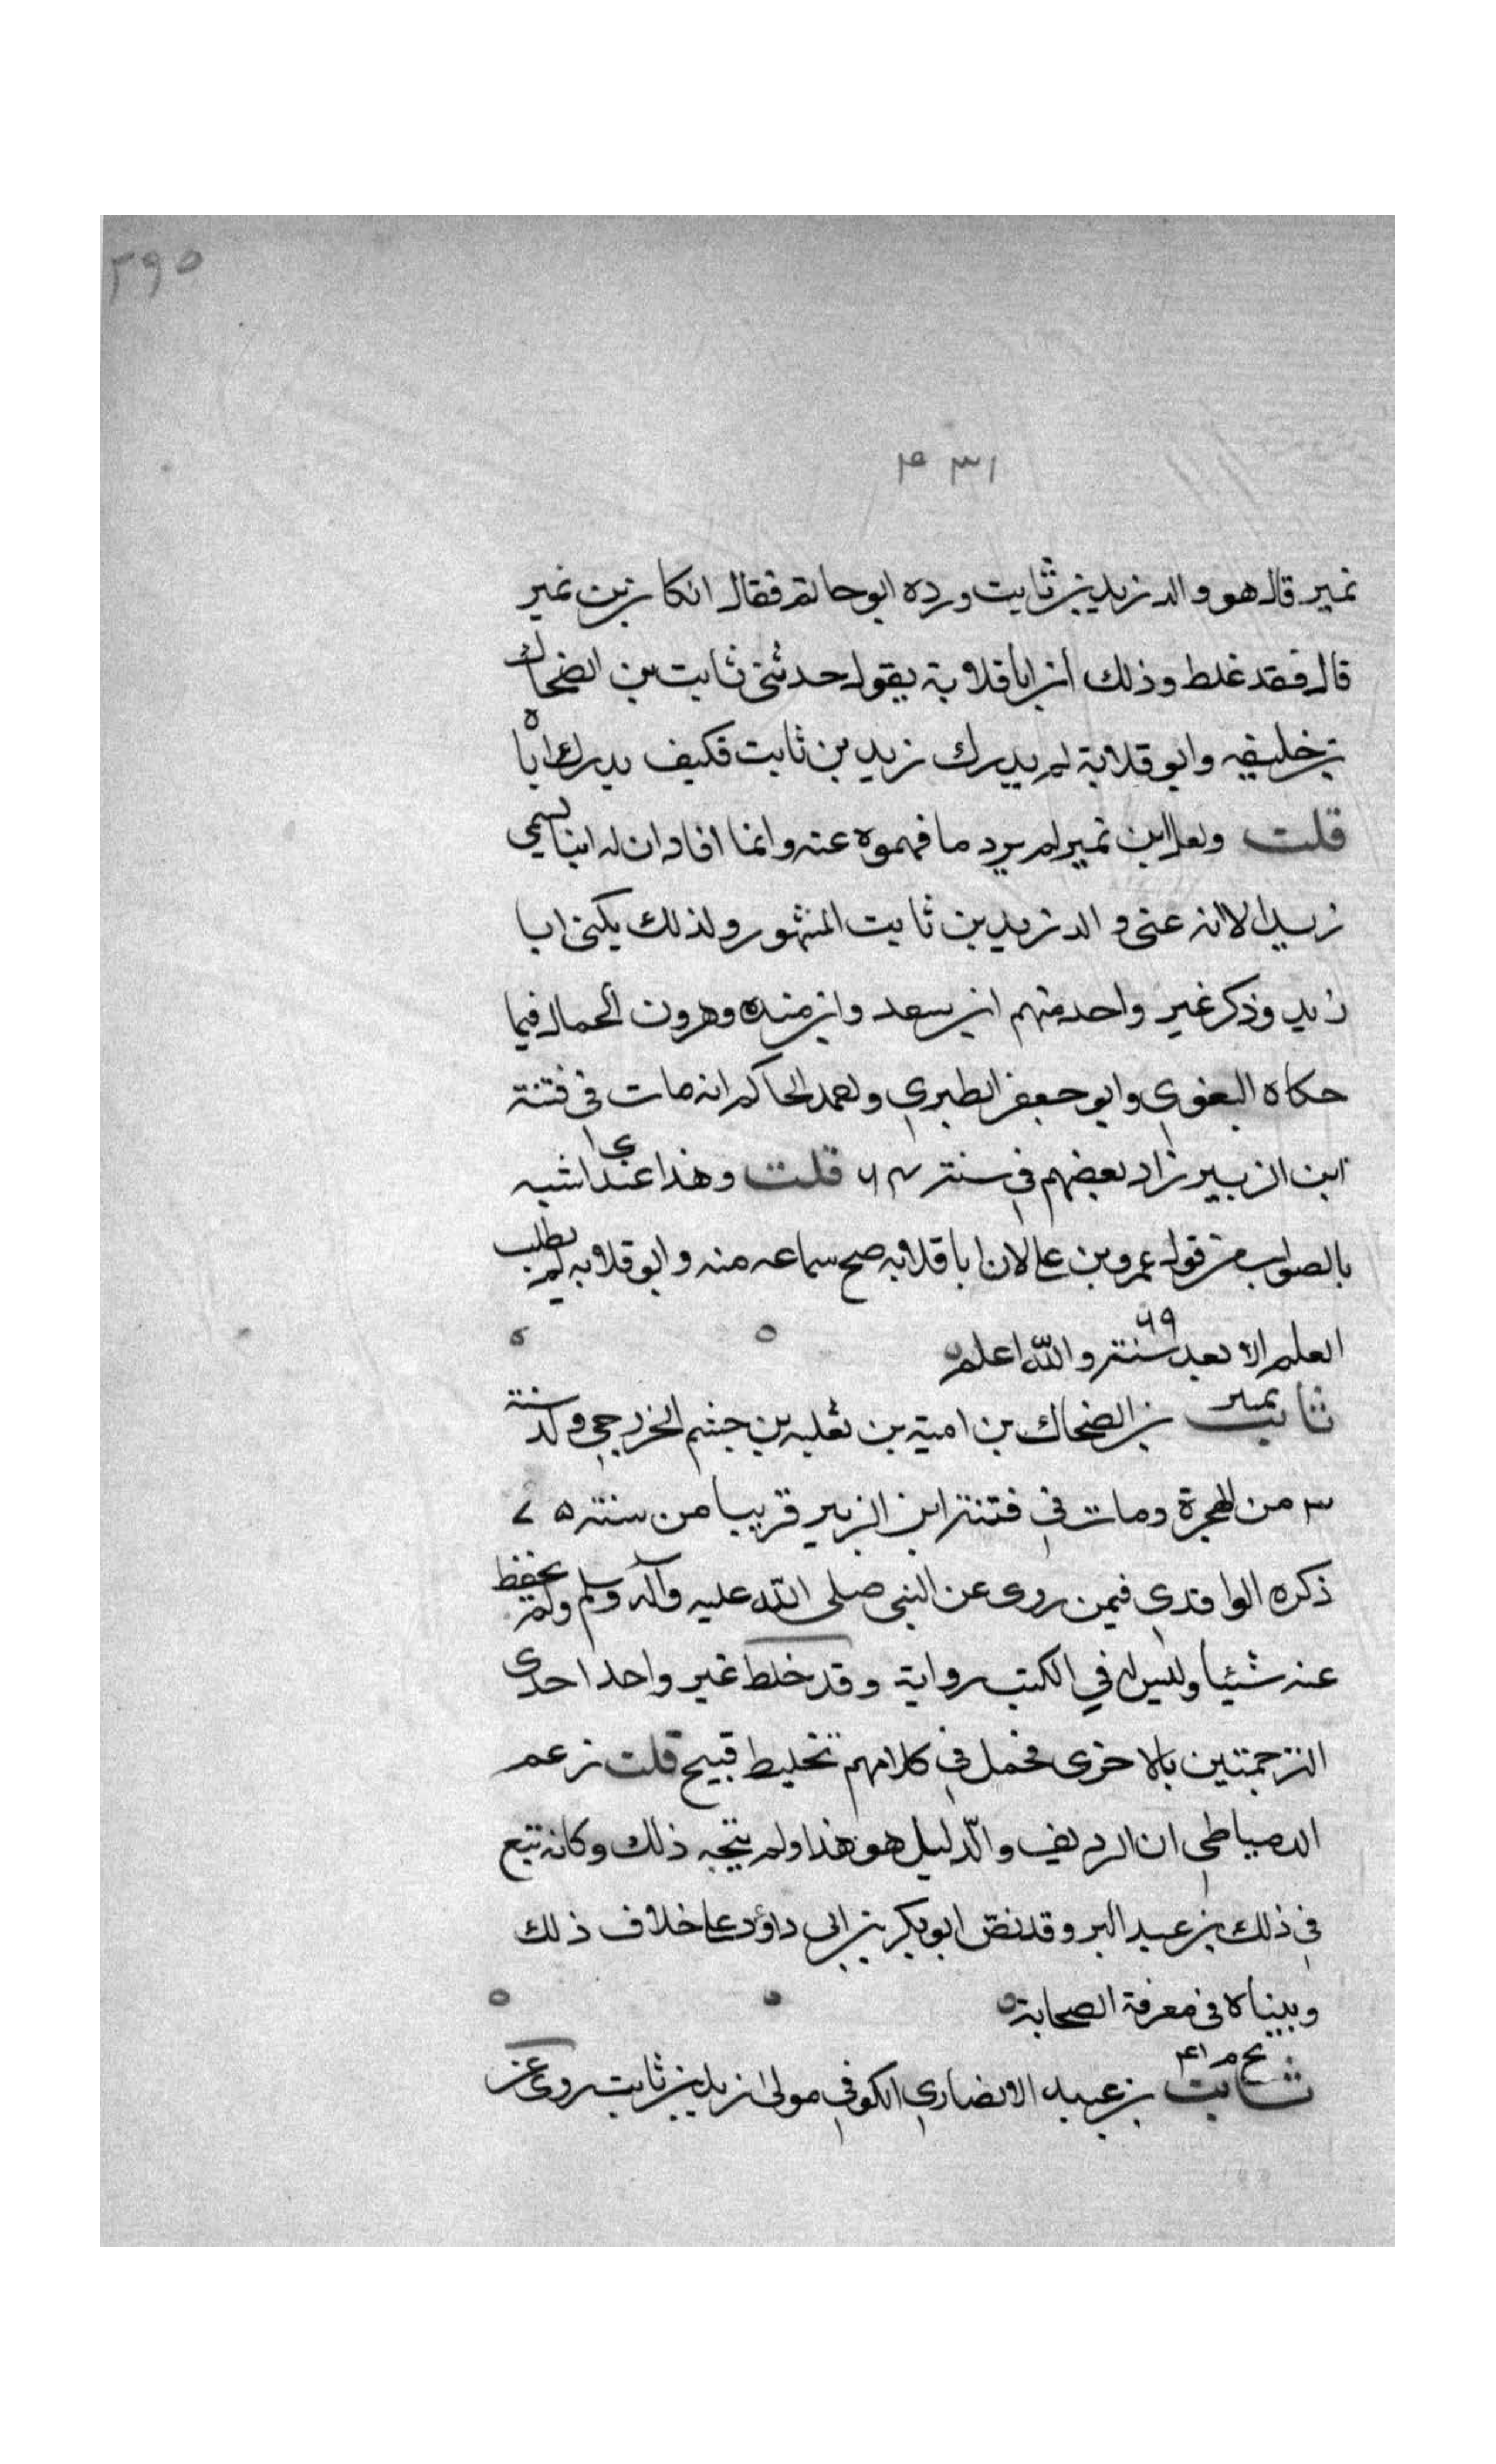 ٢٩٥
٤٣١
نمير قال هو والد زيد بن ثابت ورده ابو حاتم فقال ان كان بن نمير
قال فقد غلط وذلك ان ابا قلابة يقول حدثني ثابت بن الضحاك
بن خليفه وابو قلابة لم يدرك زيد بن ثابت فكيف يدرك اباه
قلت ولعل ابن نمير لم يرد ما فهموه عنه وانما افاد ان له ابنا يسمى
زيدا لا انه عنى والد زيد بن ثابت المشهور ولذلك يكنى ابا
زيد وذكر غير واحد منهم ابن سعد وابن منده وهرون الحمال فيما
حكاه البغوي وابو جعفر الطبري والحاكم انه مات في فتنة
ابن الزبير زاد بعضهم في سنة ٦٤ قلت وهذا عندي اشبه
بالصواب من قول عمرو بن علي لان ابا قلابه صح سماعه منه وابو قلابه لم يطلب
العلم الا بعد سنة ٦٩ والله اعلم
ثابت تمييز بن الضحاك بن امية بن ثعلبه بن جشم الخزرجي ولد سنة
٣ من الهجرة ومات في فتنة ابن الزبير قريبا من سنة ٧٥
ذكره الواقدي فيمن روى عن النبي صلى الله عليه وآله وسلم ولم يحفظ
عنه شئيا وليس له في الكتب رواية وقد خلط غير واحد احدى
الترجمتين بالاخرى فحصل في كلامهم تخليط قبيح قلت زعم
الدمياطي ان الرديف والدليل هو هذا ولم يتجه ذلك وكانه تبع
في ذلك بن عبد البر وقد نص ابو بكر بن ابى داؤد على خلاف ذلك
وبيناه في معرفة الصحابة
ثابت بن عبيد الانصاري الكوفي مولى زيد بن ثابت روى عن